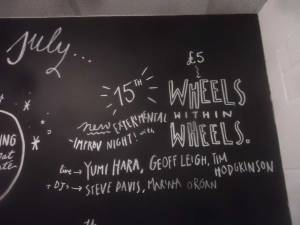 July...
£5
15TH
WHEELS
WITHIN
WHEELS.
new EXPERIMENTAL
IMPROV NIGHT!
live → YUMI HARA, GEOFF LEIGH, TIM
HODGKINSON
+ DJs → STEVE DAVIS, MARYNA ORGAN
NG
at
the